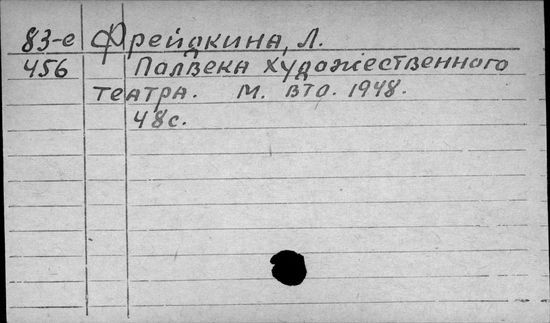 83-е Фрейдкина, Л.
456 Полвека художественного
театра. М. ВТО. 1948.
48с.